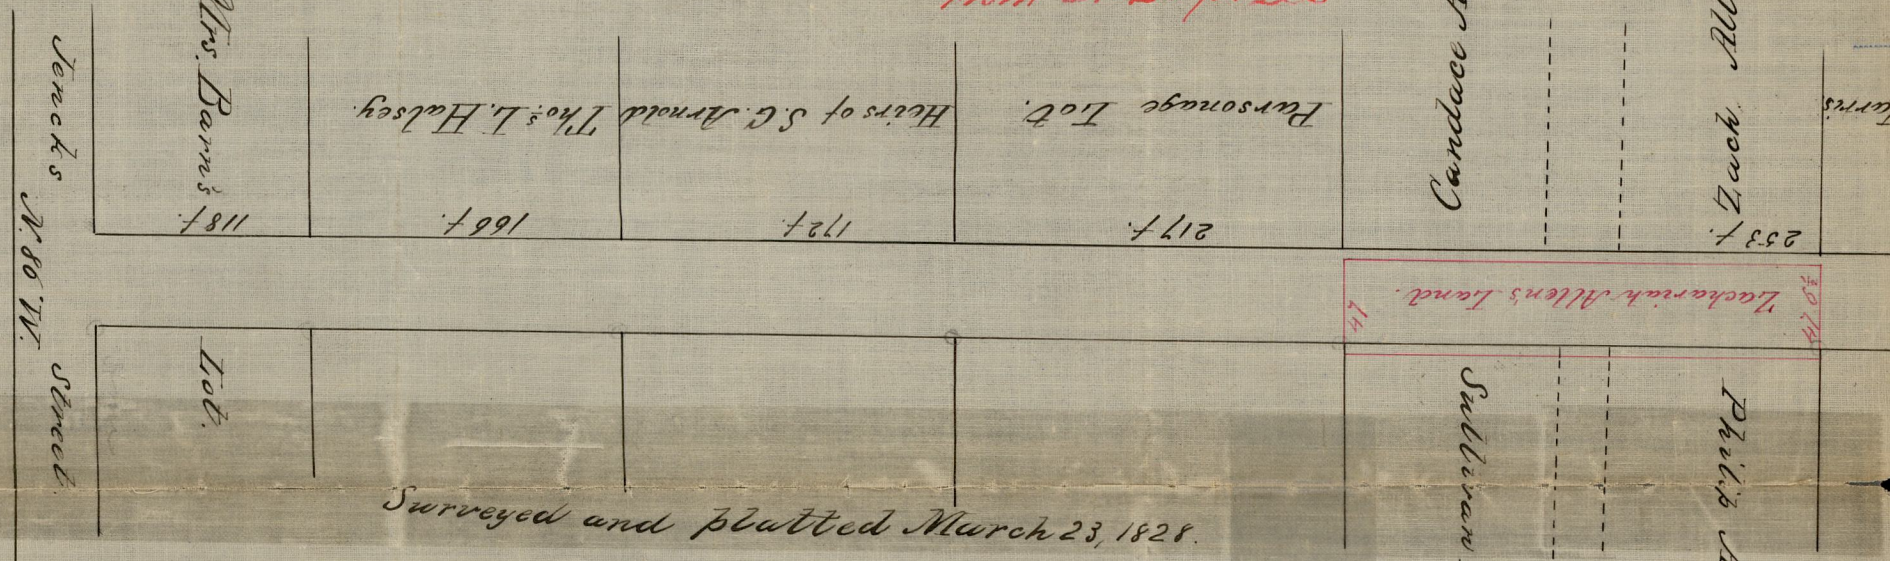 Jencks Street
N. 86 W.
Mrs. Barns Lot.
118 f.
Thos. L. Halsey.
166 f.
Heirs of S. G. Arnold
172 f.
Parsonage Lot.
217 f.
Candace
Zach All
253 f.
Zachariah Allen's Land.
Sullivan
Philip A
Surveyed and platted March 23, 1828.